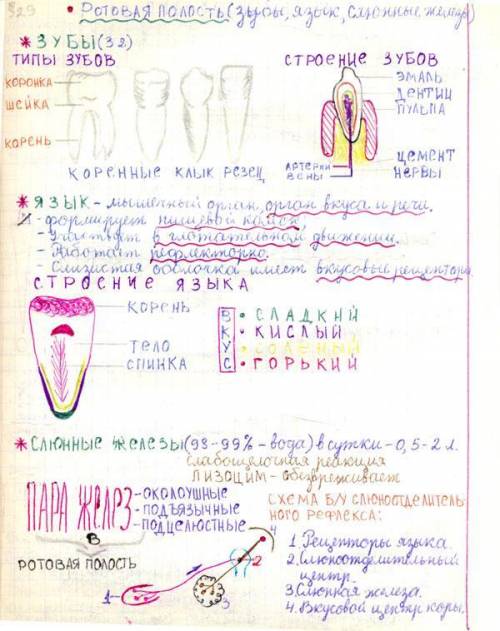 §29
• РОТОВАЯ ПОЛОСТЬ (зубы, язык, слюнные железы)
* ЗУБЫ (32)
ТИПЫ ЗУБОВ
СТРОЕНИЕ ЗУБОВ
КОРОНКА
ШЕЙКА
КОРЕНЬ
ЭМАЛЬ
ДЕНТИН
ПУЛЬПА
ЦЕМЕНТ
НЕРВЫ
АРТЕРИИ
ВЕНЫ
КОРЕННЫЕ КЛЫК РЕЗЕЦ
* ЯЗЫК - мышечный орган, орган вкуса и речи.
- формирует пищевой комок
- Участвует в глотательном движении.
- Работает рефлекторно.
- Слизистая оболочка имеет вкусовые рецепторы.
СТРОЕНИЕ ЯЗЫКА
КОРЕНЬ
ТЕЛО
СПИНКА
ВКУС
• СЛАДКИЙ
• КИСЛЫЙ
• СОЛЕНЫЙ
• ГОРЬКИЙ
* СЛЮННЫЕ ЖЕЛЕЗЫ (98-99% - вода) в сутки - 0,5-2 л.
слабощелочная реакция
ЛИЗОЦИМ - обезвреживает
ПАРА ЖЕЛЕЗ
- ОКОЛОУШНЫЕ
- ПОДЪЯЗЫЧНЫЕ
- ПОДЧЕЛЮСТНЫЕ
В
РОТОВАЯ ПОЛОСТЬ
1
2
3
4
СХЕМА Б/У СЛЮНООТДЕЛИТЕЛЬ
НОГО РЕФЛЕКСА:
1. Рецепторы языка.
2. Слюноотделительный
центр.
3. Слюнная железа.
4. Вкусовой центр коры.